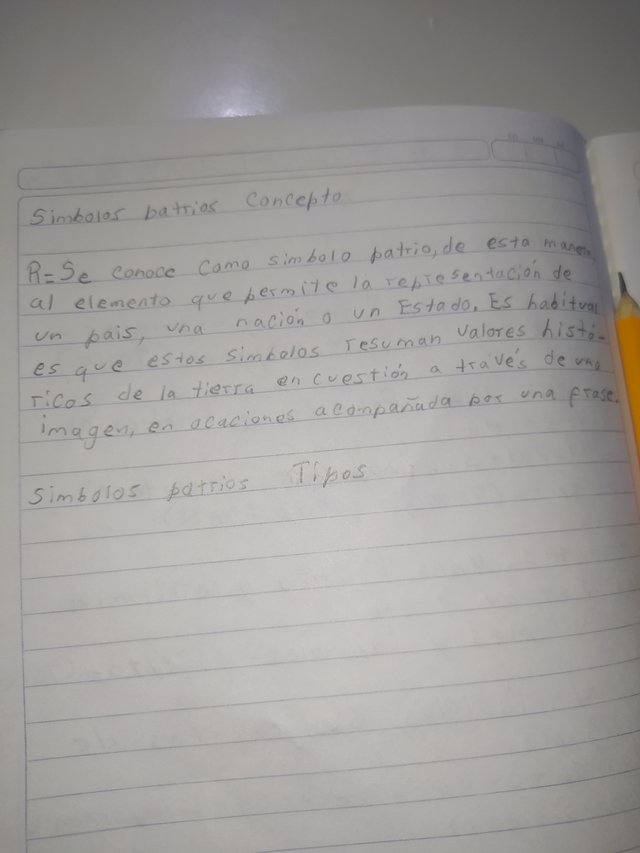 Simbolos patrios Concepto
R=Se conoce como simbolo patrio, de esta manera,
al elemento que permite la representación de
un pais, una nación o un Estado. Es habitual
es que estos simbolos resuman valores histó-
ricos de la tierra en cuestión a través de una
imagen, en ocaciones acompañada por una frase.
Simbolos patrios Tipos